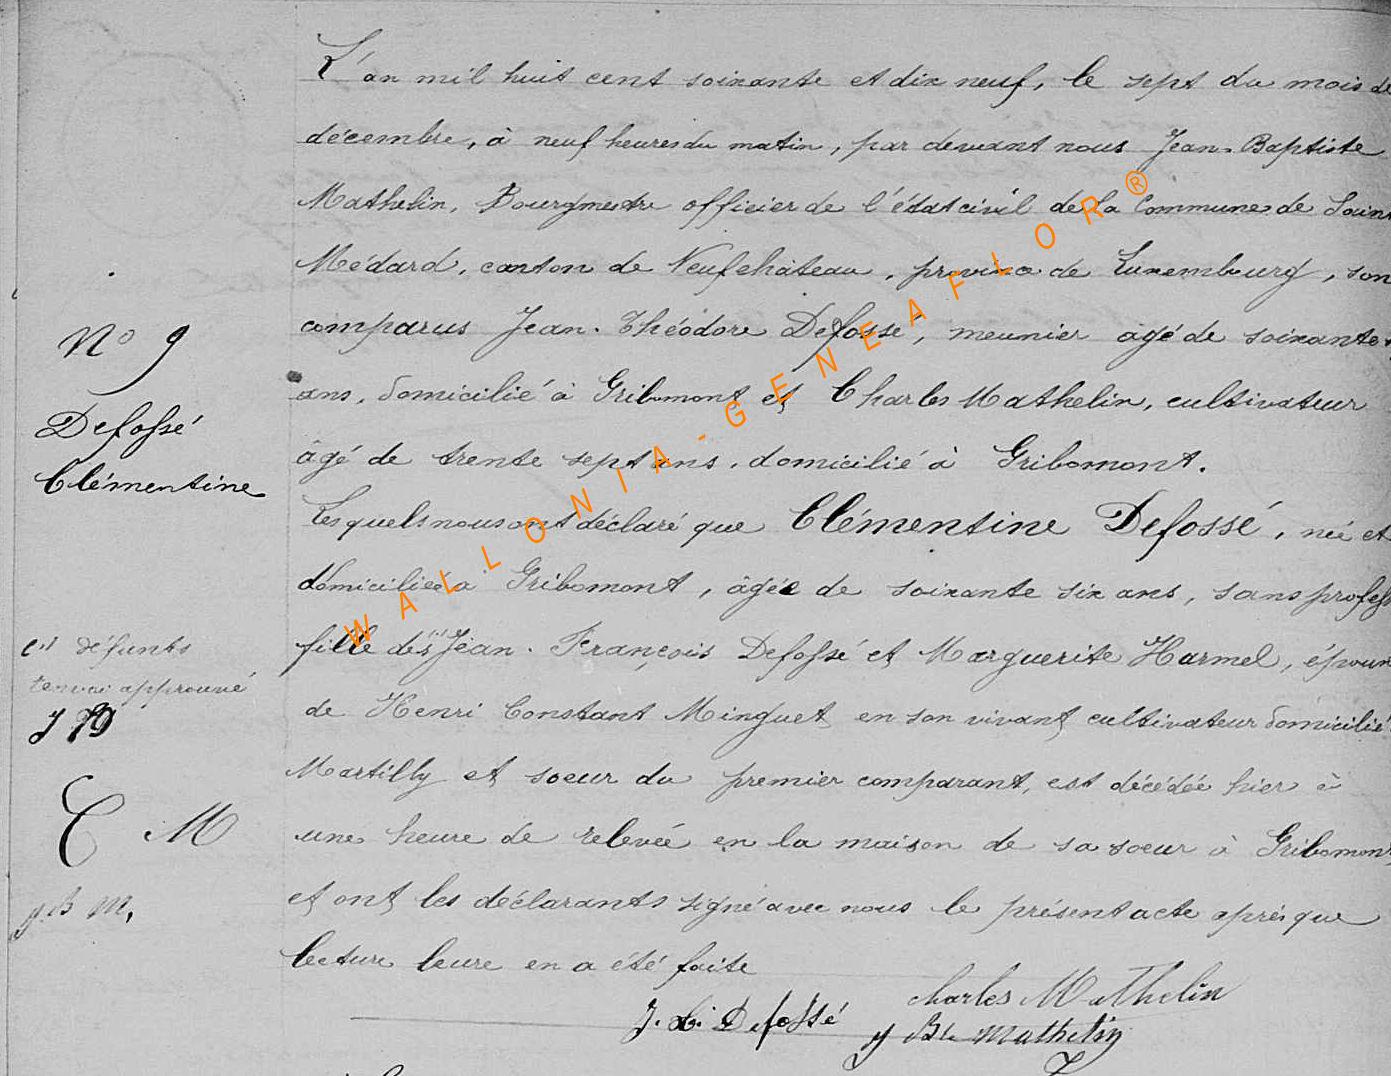 L'an mil huit cent soixante et dix neuf, le sept du mois de
décembre, à neuf heures du matin, par devant nous Jean-Baptiste
Mathelin, Bourgmestre officier de l'état civil de la Commune de Saint
Médard, canton de Neufchâteau, province de Luxembourg, son
comparus Jean-Théodore Defossé, meunier âgé de soixante
ans, domicilié à Gribomont et Charles Mathelin, cultivateur
âgé de trente sept ans, domicilié à Gribomont.
Lesquels nous ont déclaré que Clémentine Defossé, née et
domiciliée à Gribomont, âgée de soixante six ans, sans profess
fille des Jean-François Defossé et Marguerite Harmel, épouse
de Henri Constant Minguet en son vivant cultivateur domicilié
Martilly et soeur du premier comparant, est décédée hier à
une heure de relevée en la maison de sa soeur à Gribomont
et ont les déclarants signé avec nous le présent acte après que
lecture leure en a été faite
J. Th. Defossé
Charles Mathelin
J Bte Mathelin
No 9
Defossé
Clémentine
défunts
renvoi approuvé
J D
C M
J. B M.
WALLONIA-GENEAFLOR®